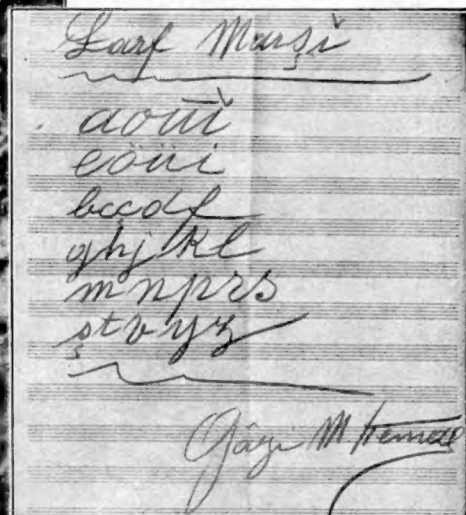 Harf Marşĭ
aouĭ
eöüi
bcçdf
ghjkl
mnprs
ştvyz
Gâzi M Kemal